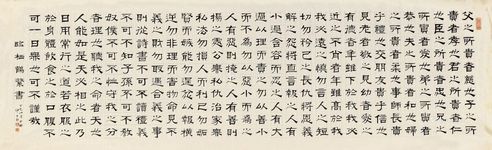 父之所貴者慈子之所
貴者孝君之所貴者仁
臣之所貴者忠兄之
所貴者愛弟之所貴者
恭夫之所貴者和婦之
所貴者柔事師長貴
乎禮交朋友貴乎信
見老者敬之見幼者愛之
有德者年雖下於我
我必尊之不肖者
近之不肖者年雖高於我
我必遠之慎勿談人之短
切勿矜己之長仇者以義
解之怨者以直報之人有
小過含容而忍之人有大
過以理而諭之勿以善小
而不為勿以惡小而為之
人有惡則掩之人有善則
揚之處公無私仇治家無
私法勿損人而利己勿妒
賢而嫉能勿逞忿以報橫
逆勿非理而害物命見不
義之財勿取遇合義之事
則從詩書不可不讀禮義
不可不知子孫不可不教
奴僕不可不恤守我之分
者理也聽我之命者天也
人能如是天必相之此乃
日用常行之道若衣服之
於身體飲食之於口腹不
可一日無之可不謹哉